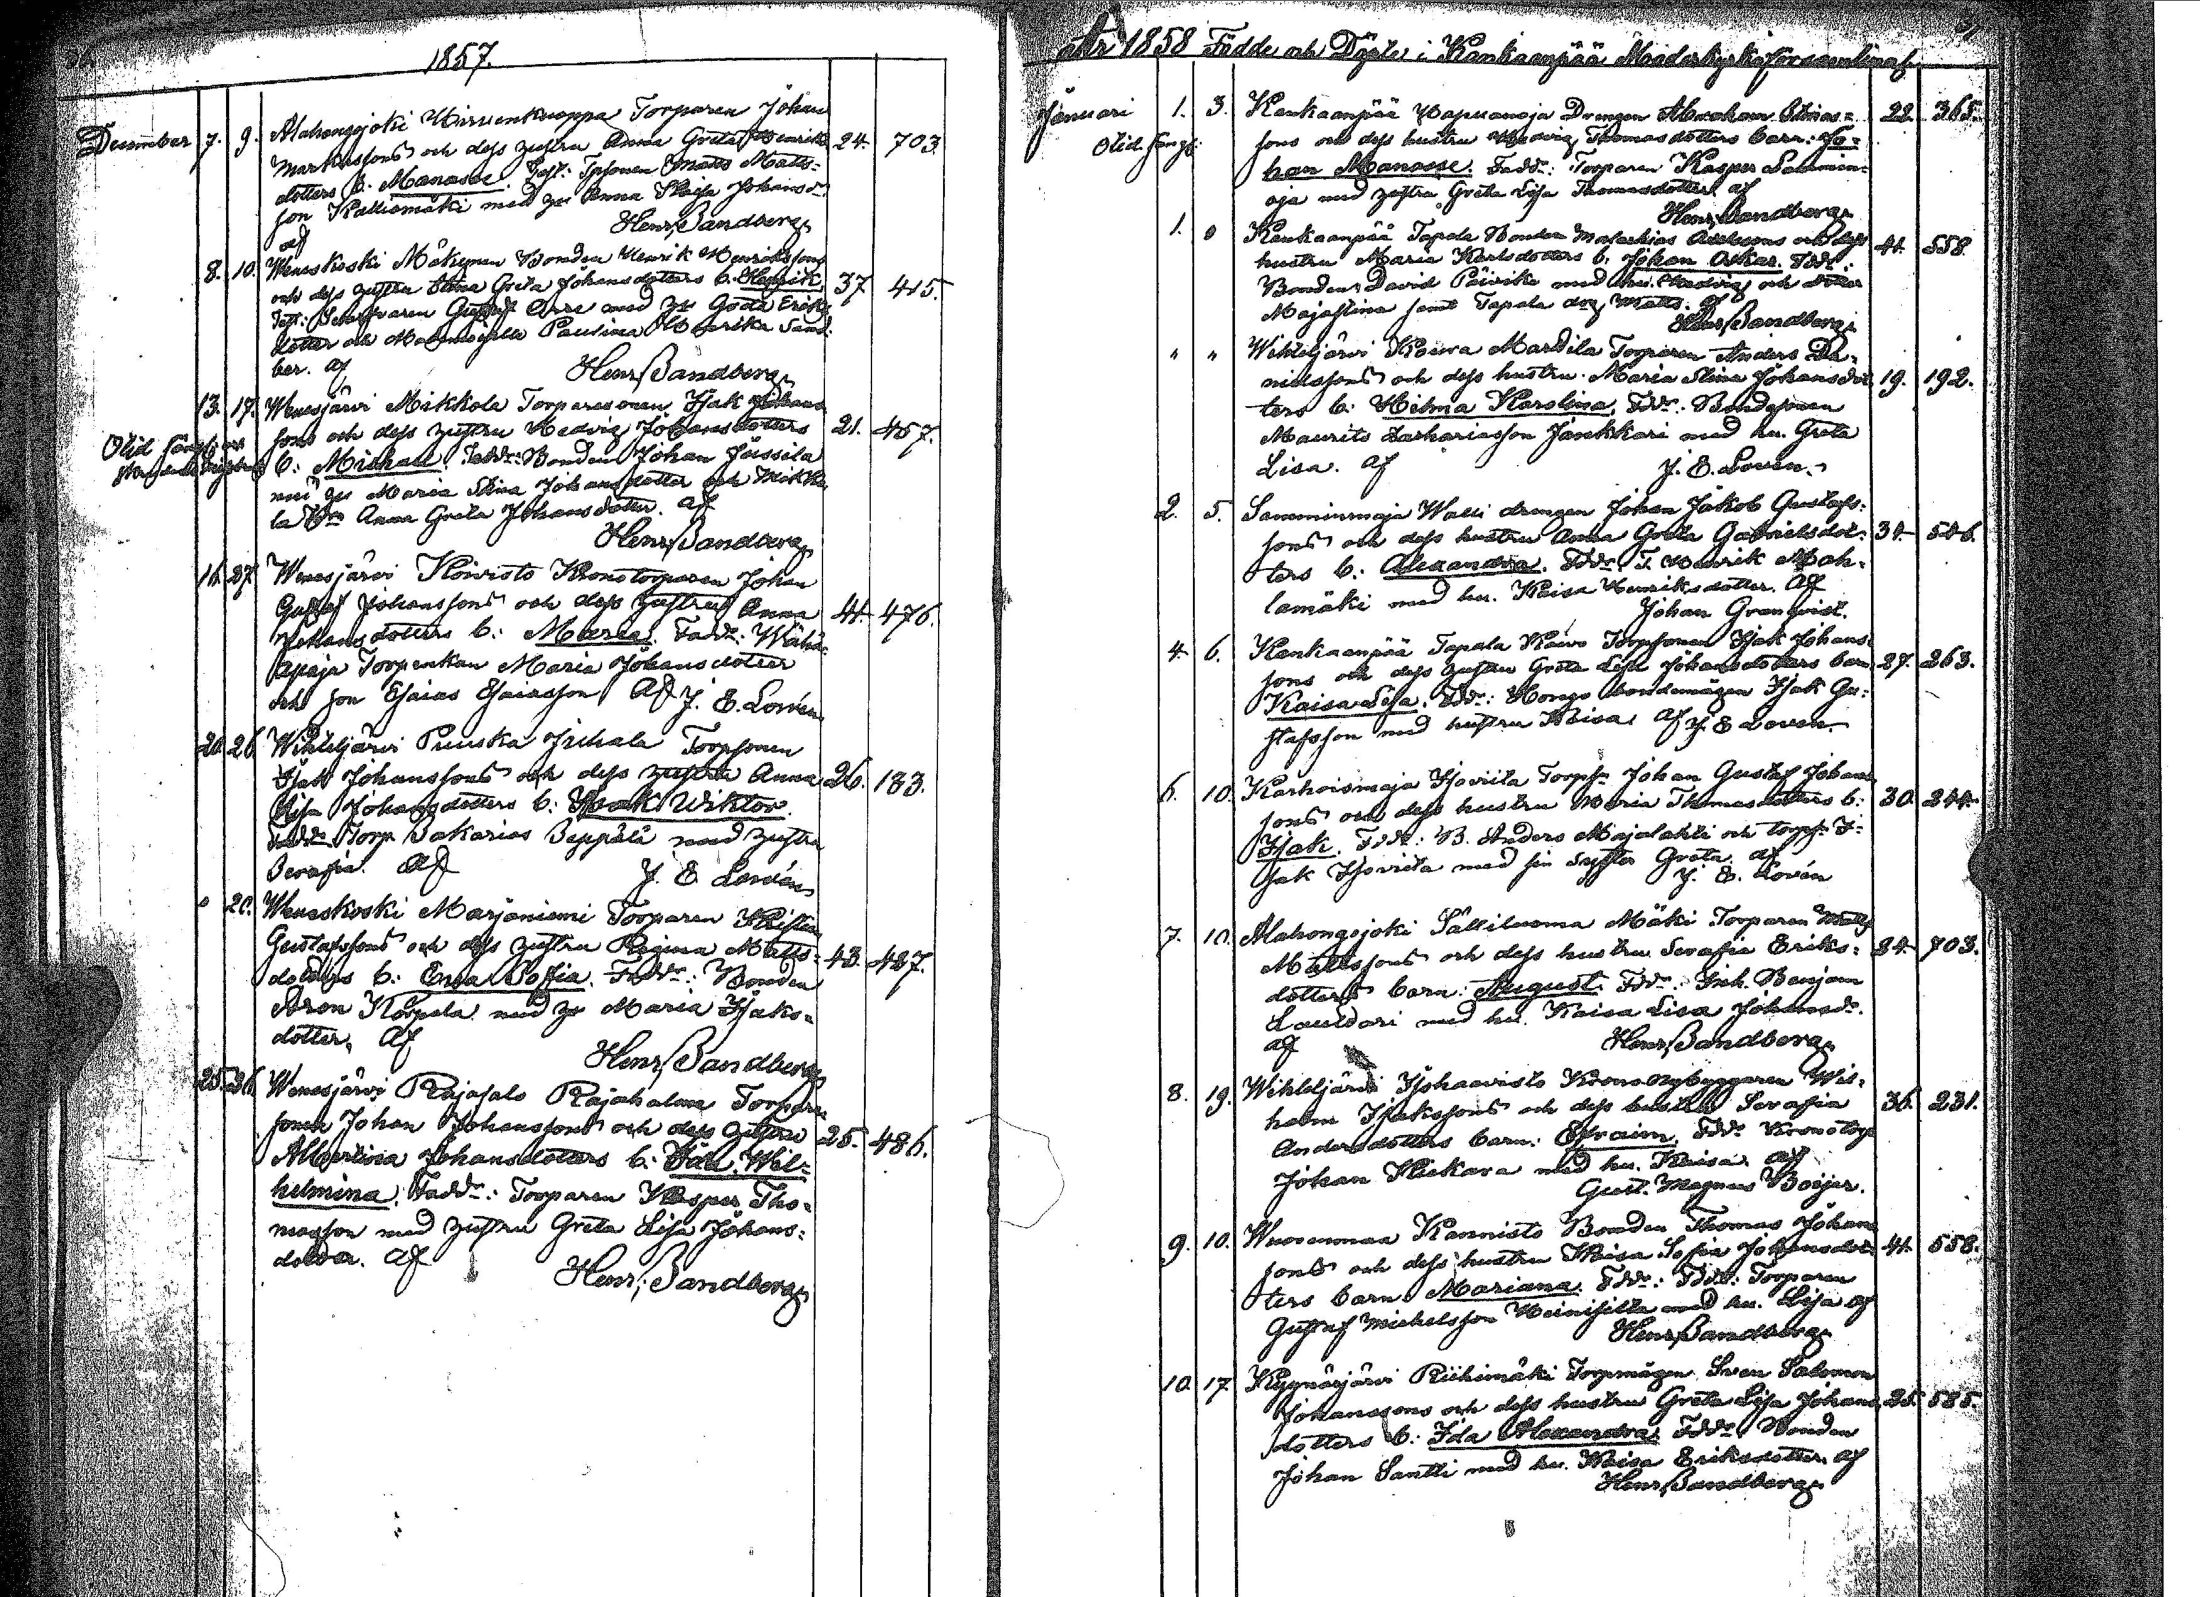 1857.
December 7. 9. Alahongojoki Hirvenkuoppa Torparen Johan
Markussons och dess hustru Anna Greta Henriks
dotters b. Manasse. Test: Tpsonen Matts Matts= 24. 703.
son Kalliomäki med h. Anna Kaisa Johansdr
af Henr. Sandberg
8. 10. Weneskoski Mäkynen Bonden Henrik Henrikssons
och dess hustru Elina Greta Johansdotters b. Henrik 37 415.
Test: Gustaf Arre med Goda Eriks
dotter och Mademoiselle Paulina Ulberika Sand:
ber. af Henr. Sandberg
13. 17. Wenesjärvi Mikkola Torparesonen Isak Johans
sons och dess hustru Hedvig Johansdotters 21. 457.
Olid säng
b: Michael. Faddr: Bonden Johan Jussila
med Maria Stina Johansdotter och Mikko
la Anna Greta Johansdotter. af
Henr. Sandberg
16. 27. Wenesjärvi Koivisto Kronotorparen Johan
Gustaf Johanssons och dess hustru Anna 41. 476.
Johansdotters b: Maria. Faddr: Wähä=
apaja Torpenkan Maria Johansdotter
och son Esaias Esaiasson af J. E. Lovén
20. 26. Wihteljärvi Puuska Torpsonen
Isak Johanssons och dess hustru Anna 26. 183.
Lisa Johansdotters b: Isak Wiktor.
Faddr Torp Sakarias Seppälä med hustru
Serafia. af J. E. Lovén
" 20. Weneskoski Marjaniemi Torparen Kristian
Gustafssons och dess hustru Regina Matts= 43. 427.
dotters b: Eva Sofia. Faddr: Bonden
Aron Korpela med h. Maria Isaks=
dotter, af
Henr. Sandberg
25. 26. Wenesjärvi Rajasalo Rajahalme Torpare
sonen Johan Johanssons och dess hustru 25. 486.
Albertina Johansdotters b: Ida Wil=
helmina. Faddr: Torparen Kasper Tho=
masson med hustru Greta Lisa Johans=
dotter. af
Henr. Sandberg
År 1858 Födde och Döpte i Kankaanpää Moderkyrkoförsamling af
Januari 1. 3. Kankaanpää Hapuanoja Drengen Abraham 22. 365.
Olid. sängs. sons och dess hustru Hedvig Thomasdotters barn: Jo=
han Manasse. Faddr: Torparen Kasper Sammin=
oja med hustru Greta Lisa Thomasdotter af
Henr. Sandberg
1. " Kankaanpää Tapala Bonden Malachias Axelssons och dess 41. 558.
hustru Maria Karlsdotters b. Johan Oskar. Fddr:
Bonden David Päivike med hu. Hedvig och dotter
Majastina samt Tapala drg Matts. af
Henr. Sandberg
" " Wihteljärvi Kouva Mardila Torparen Anders Da=
nielssons och dess hustru Maria Stina Johansdot 19. 192.
ters b: Hilma Karolina. Fddr: Bondesonen
Maurits Zachariasson Jankkari med hu. Greta
Lisa. af J. E. Lovén.
2. 5. Samminmaja Walli drengen Johan Jakob Gustafs=
sons och dess hustru Anna Greta Gabrielsdot= 34. 546.
ters b: Alexandra. Fddr. T. Henrik Mah=
lamäki med hu. Kaisa Henriksdotter. af
Johan Granqvist.
4. 6. Kankaanpää Tapala Koivo Torpsonen Isak Johans
sons och dess hustru Greta Lisa Johansdotters barn 27. 263.
Kaisa Lisa. Fddr: Hongo bondemågen Isak Gu=
stafsson med hustru Kaisa. af J. E. Loven.
6. 10. Karhoismaja Isoviita Torps Johan Gustaf Johans
sons och dess hustru Maria Thomasdotters b: 30. 244.
Isak. Fddr: B. Anders Majalahti och torps I=
sak Isoviita med sin syster Greta. af
J. E. Lovén
7. 10. Alahongojoki Sälliluoma Mäki Torparen Matts
Mattssons och dess hustru Serafia Eriks= 24. 703.
dotters barn: August. Fddr: Inh. Benjam
Lauldari med hu. Kaisa Lisa Johansdr.
af Henr. Sandberg
8. 19. Wihteljärvi Isohaavisto Krononybyggaren Wil=
helm Isakssons och dess hustru Serafia 36. 231.
Andersdotters barn: Efraim. Fddr Kronotorp
Johan Kiekara med hu. Kaisa. af
Gust. Magnus Boijer.
9. 10. Wuorenmaa Kannisto Bonden Thomas Johans
sons och dess hustru Kaisa Sofia Johansdot= 41. 558.
ters barn Mariana. Fddr: Fddr: Torparen
Gustaf Michelsson Heinisilta med hu. Lisa af
Henr. Sandberg
10. 17. Kyynärjärvi Riihimäki Torpmågen Sven Salomon
Johanssons och dess hustru Greta Lisa Johans 25. 585.
dotters b: Ida Alexandra. Fddr. Bonden
Johan Santti med hu. Kaisa Eriksdotter. af
Henr. Sandberg